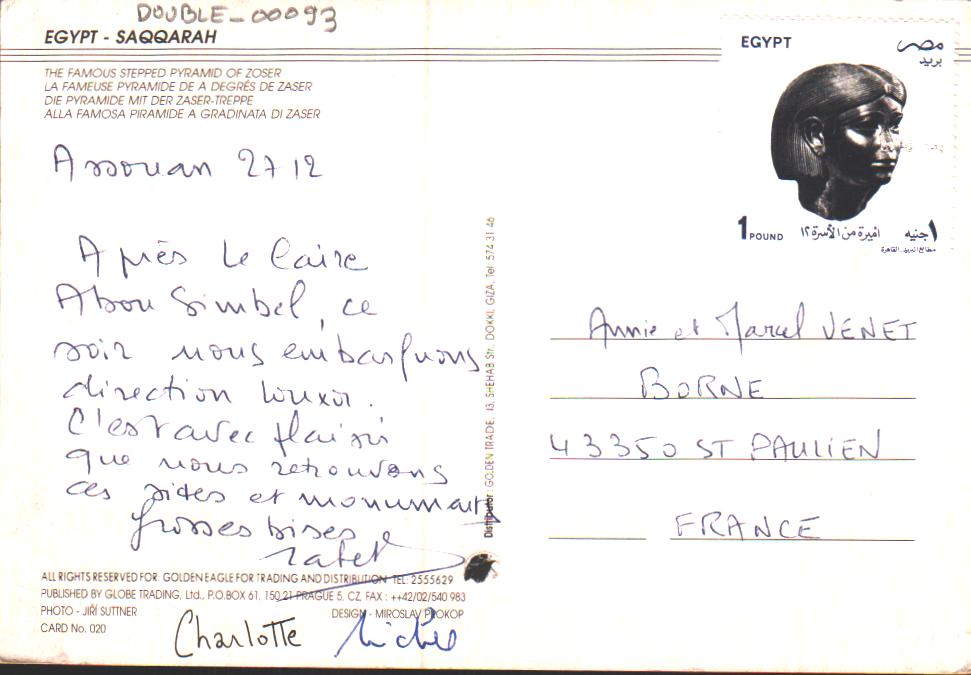 DOUBLE_00093
EGYPT - SAQQARAH
THE FAMOUS STEPPED PYRAMID OF ZOSER
LA FAMEUSE PYRAMIDE DE A DEGRÉS DE ZASER
DIE PYRAMIDE MIT DER ZASER-TREPPE
ALLA FAMOSA PIRAMIDE A GRADINATA DI ZASER
Assouan 27 12
Après Le Caire
Abou Simbel, ce
soir nous embarquons
direction Louxor.
C'est avec plaisir
que nous retrouvons
ces sites et monuments
Grosses bises
Charlotte Michel
ALL RIGHTS RESERVED FOR GOLDEN EAGLE FOR TRADING AND DISTRIBUTION TEL: 2555629
PUBLISHED BY GLOBE TRADING, Ltd., P.O.BOX 61, 150 21 PRAGUE 5, CZ, FAX : ++42/02/540 983
PHOTO - JIŘÍ SUTTNER
DESIGN - MIROSLAV PROKOP
CARD No. 020
Distributor: GOLDEN TRADE, 13, SHEHAB Str., DOKKI, GIZA, Tel: 574 31 46
EGYPT
مصر
بريد
1 POUND
اميرة من الأسرة ١٢
١ جنيه
مطابع البريد.القاهرة
Annie et Marcel VENET
BORNE
43350 ST PAULIEN
FRANCE